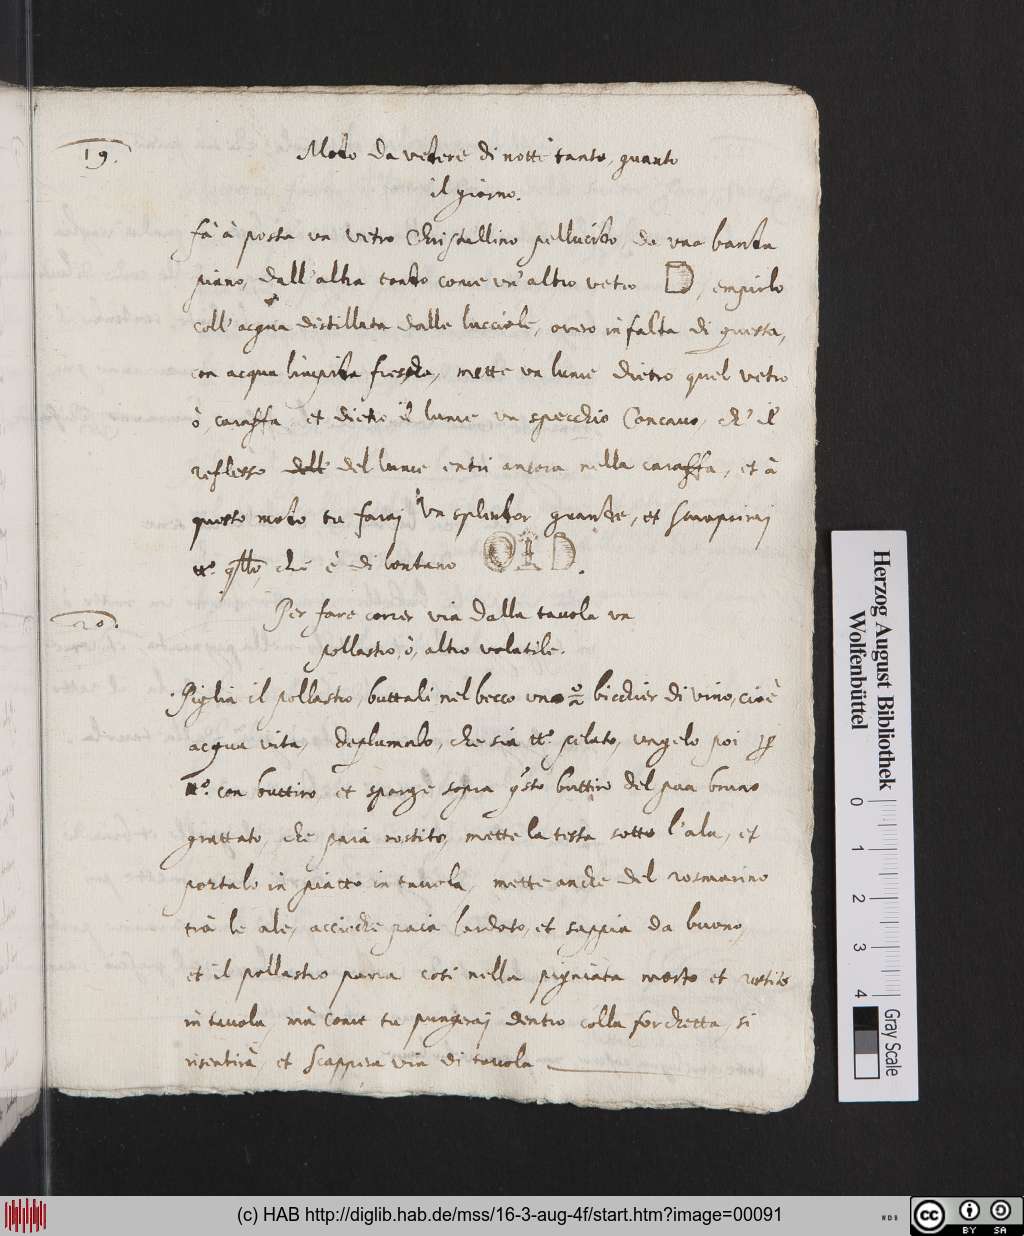 19.
Modo da vedere di notte tanto, quanto
il giorno.
fà à posta un vetro Christallino pellucido, da una banda
piano, dall'altra tondo come un'altro vetro D, empirlo
coll'acqua distillata dalle lucciole, overo in falta di questa,
con acqua limpida fresca, mette un lume dietro quel vetro
ò, caraffa, et dietro il lume un specchio Concavo, ch'il
reflesso dell' del lume entri ancora nella caraffa, et à
questo modo tu farai un splendor grande, et scuoprirai
tt.º qllo, che è di lontano
20.
Per fare correr via dalla tavola un
pollastro, ò, altro volatile.
Piglia il pollastro, buttali nel becco un bicchier di vino, cioè
acqua vita, deplumalo, che sia tt.º pelato, ungelo poi p
tt.º con buttiro, et sparge sopra qsto buttiro del pan bruno
grattato, che paia rostito, mette la testa sotto l'ala, et
portalo in piatto in tavola, mette anche del rosmarino
trà le ale, accieche paia lardato, et sappia da buono,
et il pollastro paria cosi nella pigniata morto et rostito
in tavola, mà come tu pungerai dentro colla forchetta, si
risentirà, et scappera via di tavola
Herzog August Bibliothek
Wolfenbüttel
0 1 2 3 4
Gray Scale
(c) HAB http://diglib.hab.de/mss/16-3-aug-4f/start.htm?image=00091
cc BY SA